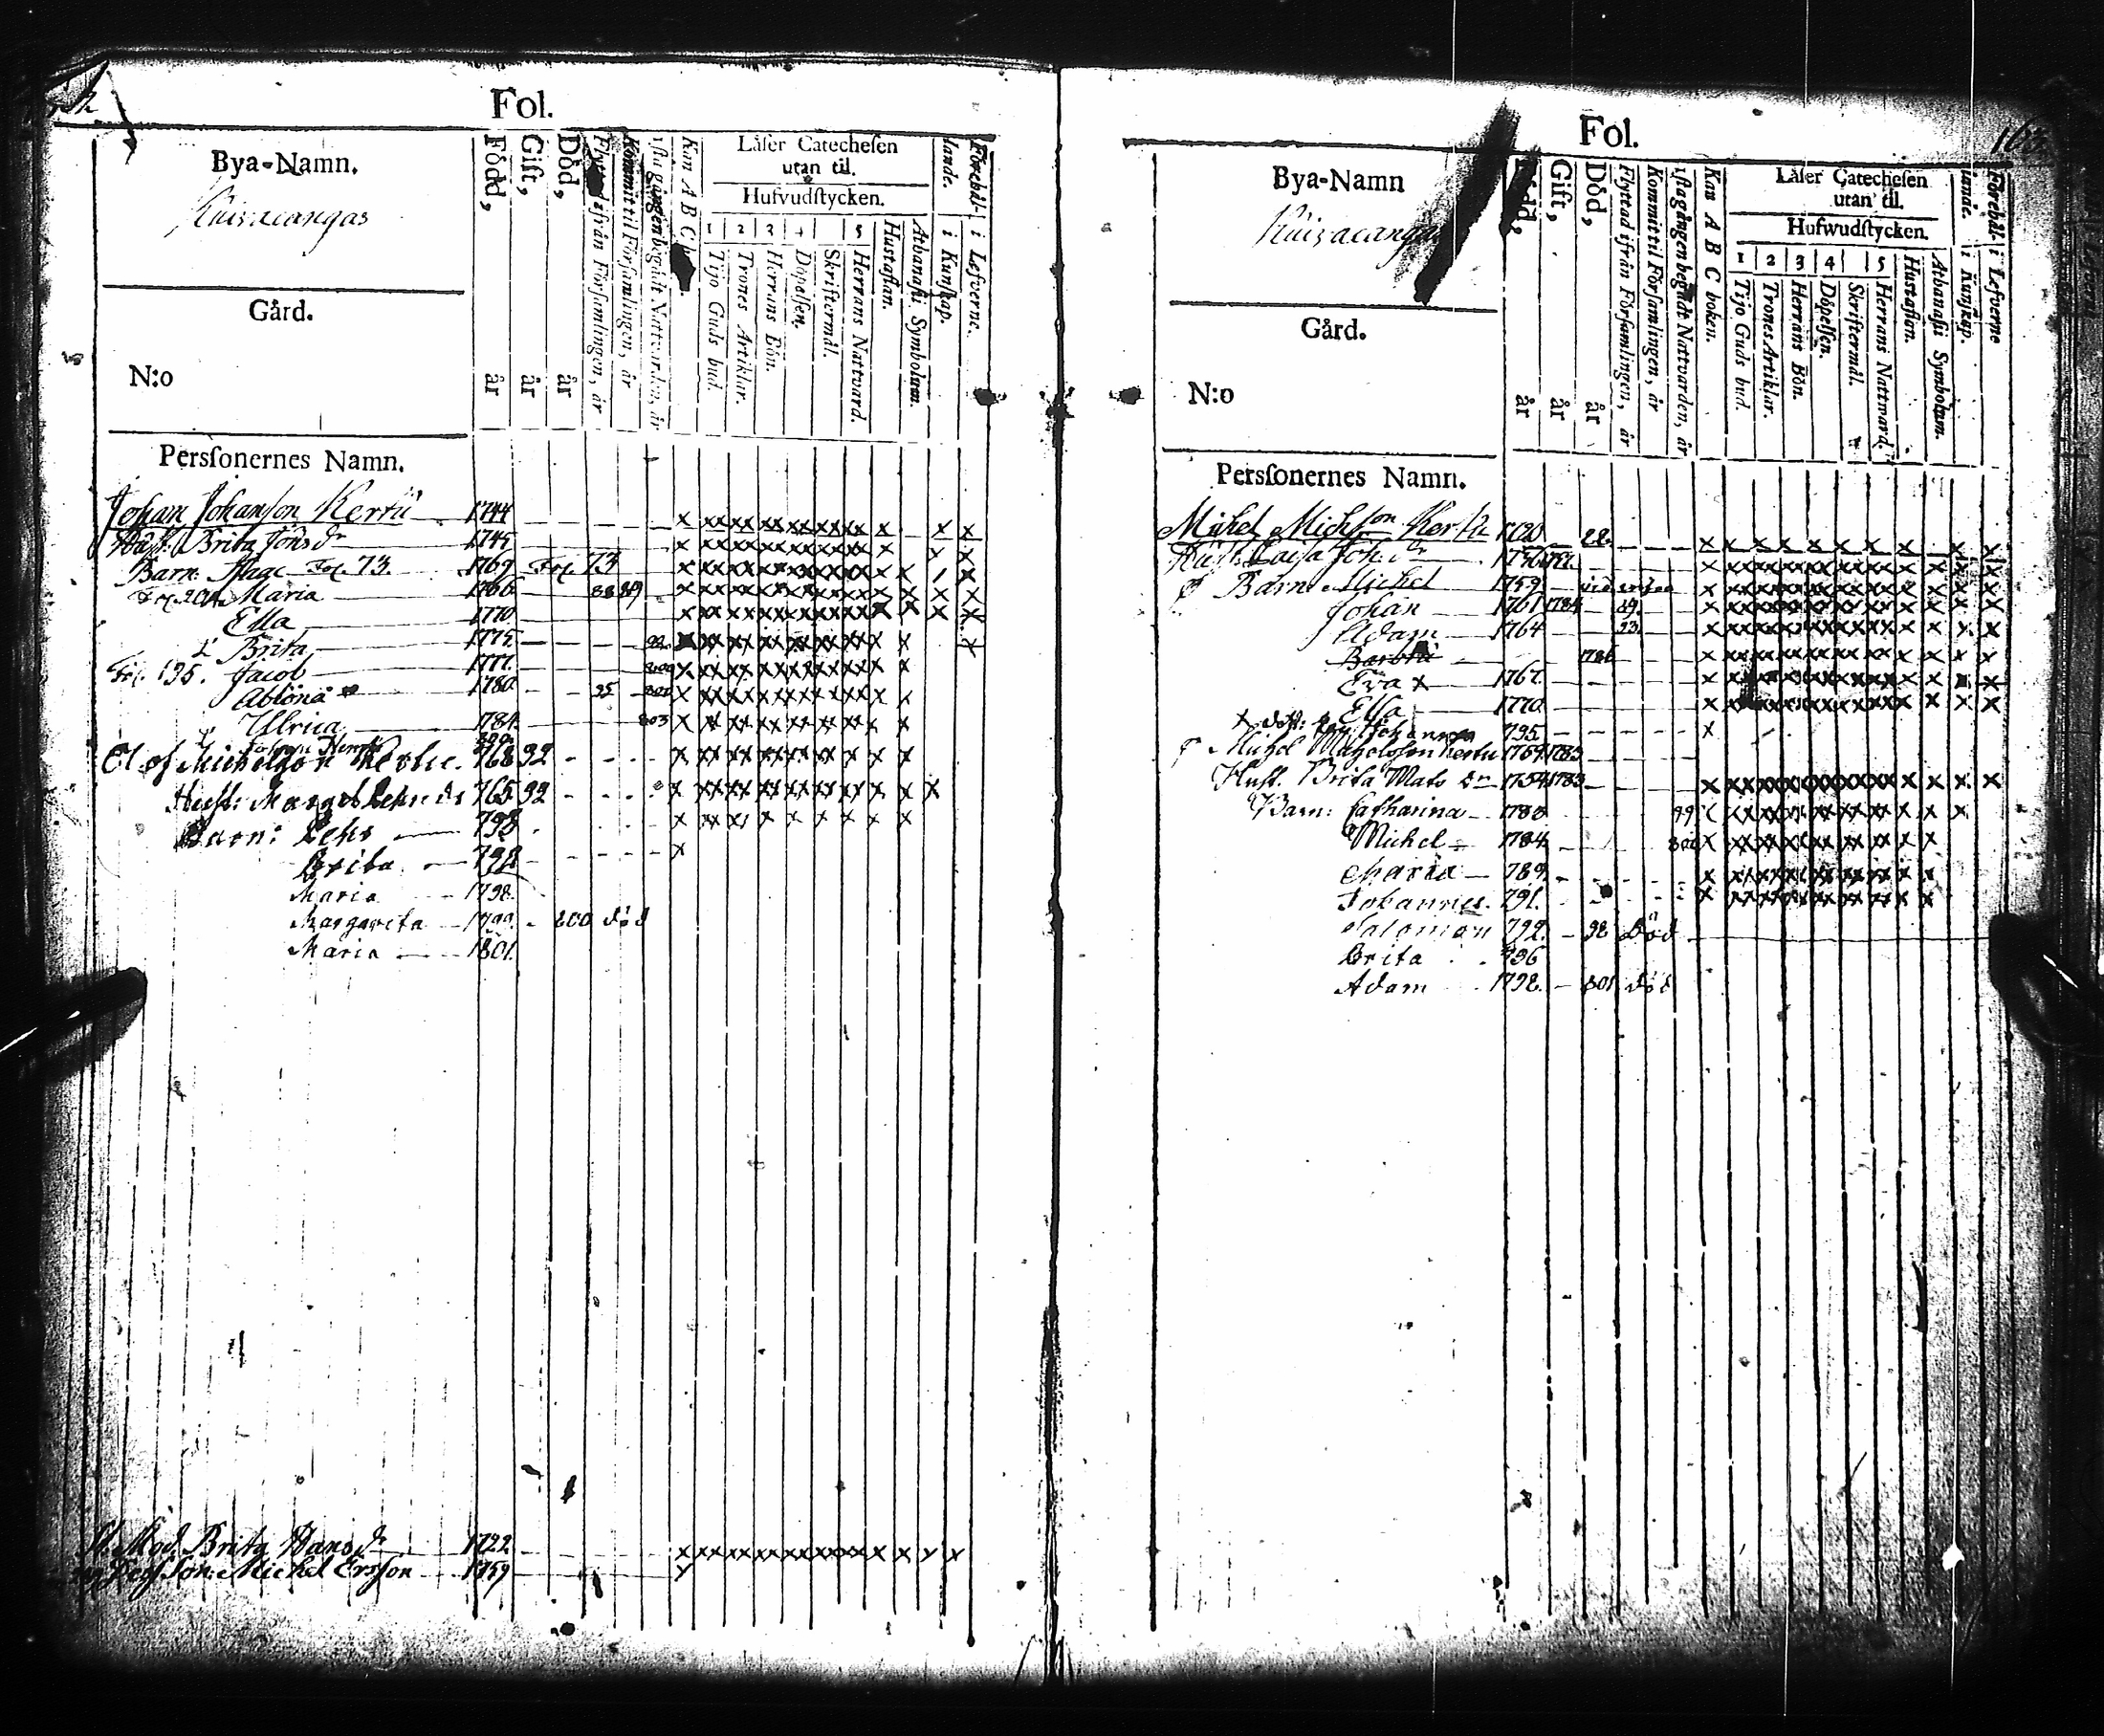 Fol.
Bya-Namn.
Kuivacangas
Gård.
N:o
Född, år
Gift, år
Död, år
Flyttad ifrån Församlingen, år
Kommit til Församlingen, år
Kan A B C
Låser Catechesen
utan til.
Hufvudstycken.
1 2 3 4 5
Tijo Guds bud.
Trones Artiklar.
Herrans Bön.
Döpelsen.
Skriftermål.
Herrans Nattvard.
Hustaflan.
Athanasii Symbolum.
Förehållande.
i Kunskap.
i Lefverne.
Perssonernes Namn.
Johan Johansson Kertu 1744
Hust. Brita Jönsdr 1745
Barn. Fol. 73. 1769 Fol. 73
Maria 1766
Ella 1770
Brita 1775
Fol. 195. Jacob 1777.
Abiöna 1780 95
Ulrica 1784 803
Olof Michelson Kertu. 768 92
Hust: Marget Lehrsdr 765 92
Barn: Lehr 798
Brita 798
Maria 1798
Margareta 1799 800 död
Maria 1801.
Mod. Brita Hansdr 1722
Son Michel Ersson 1759
Fol.
Bya-Namn
Kuivacanga
Gård.
N:o
Född, år
Gift, år
Död, år
Flyttad ifrån Församlingen, år
Kommit til Församlingen, år
1sta gången begådt Nattvarden, år
Kan A B C boken.
Låser Catechesen
utan til.
Hufwudstycken.
1 2 3 4 5
Tijo Guds bud.
Trones Artiklar.
Herrans Bön.
Döpelsen.
Skriftermål.
Herrans Nattward.
Hustaflan.
Athanasii Symbolum.
Förehållande.
i Kunskap.
i Lefverne
Perssonernes Namn.
Michel Michsson Kertu 1720 88
Hust. Caisa Joh.dr
Barn Michel 1759
Johan 1761 1784 89.
Adam 1764 93.
Barbru 1786
Eva x 1767.
Ella 1770
Johannes 795
Michel Michelsson Kertu 1759 1783
Hust. Brita Matsdr 1754 1783
Barn: Catharina 1783 99
Michel 1784 800
Maria 789
Johannes. 791.
Salomon 792. 98 död
Brita 796
Adam 1798. 801 död